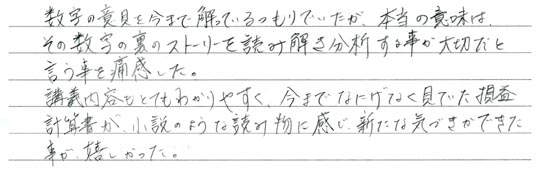 数字の意味を今まで解っているつもりでいたが、本当の意味は、
その数字の裏のストーリーを読み解き分析する事が大切だと
言う事を痛感した。
講義内容もとてもわかりやすく、今までなにげなく見ていた損益
計算書が、小説のような読み物に感じ、新たな気づきができた
事が、嬉しかった。